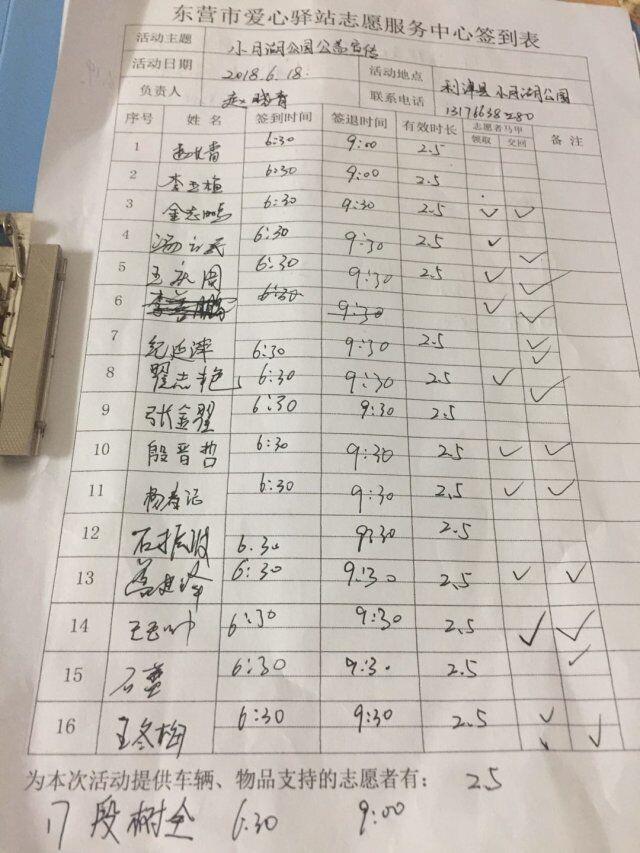 东营市爱心驿站志愿服务中心签到表
活动主题 小月湖公园公益宣传
活动日期 2018.6.18. 活动地点 利津县小月湖公园
负责人 赵晓青 联系电话 13176638280
序号 姓名 签到时间 签退时间 有效时长 志愿者马甲 领取 交回 备注
1 6:30 9:00 2.5
2 李玉梅 6:30 9:00 2.5
3 金志鹏 6:30 9:30 2.5 ✓ ✓
4 汤立民 6:30 9:30 2.5 ✓ ✓
5 王永周 6:30 9:30 2.5 ✓ ✓
6 6:30 9:30 ✓ ✓
7 纪延津 6:30 9:30 2.5 ✓
8 翟志艳 6:30 9:30 2.5 ✓ ✓
9 张金翠 6:30 9:30 2.5
10 殷晋哲 6:30 9:30 2.5 ✓ ✓
11 6:30 9:30 2.5 ✓ ✓
12 石振波 6.30 9:30 2.5
13 6:30 9:30 2.5 ✓ ✓
14 王玉帅 6:30 9:30 2.5 ✓ ✓
15 石蕾 6:30 9:30 2.5 ✓
16 王冬梅 6:30 9:30 2.5 ✓ ✓
为本次活动提供车辆、物品支持的志愿者有： 2.5
17 段树全 6.30 9:00